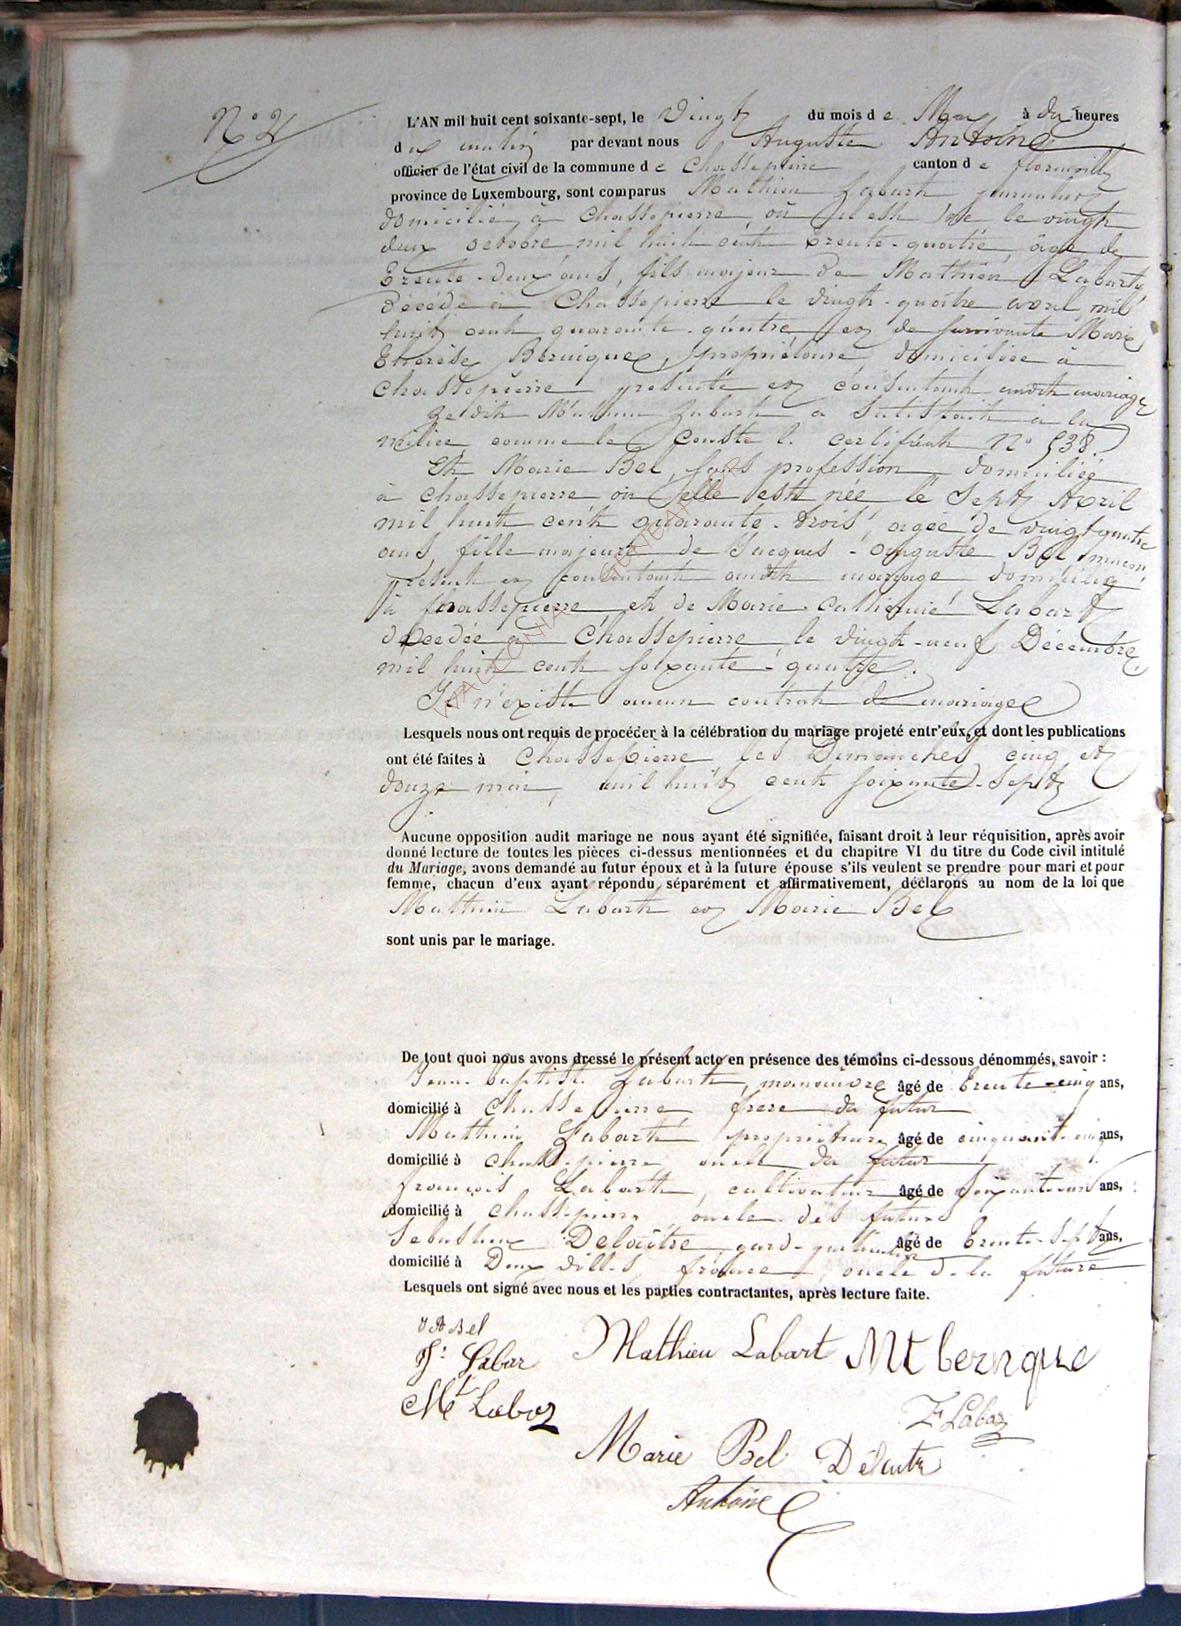 N° 2
L'AN mil huit cent soixante-sept, le Vingt du mois de Mai à dix heures
du matin par devant nous Auguste Antoine
officier de l'état civil de la commune de Chassepierre canton de florenville
province de Luxembourg, sont comparus Mathieu Labart journalier
domicilié à Chassepierre où il est né le vingt
deux octobre mil huit cent trente-quatre, âgé de
trente-deux ans, fils majeur de Mathieu Labart,
décédé à Chassepierre le vingt-quatre avril mil
huit cent quarante-quatre et de survivante Marie
Thérèse Bernique, propriétaire, domiciliée à
Chassepierre présente et consentante audit mariage
Ledit Mathieu Labart a satisfait à la
milice comme le conste l. certificat N° 538.
Et Marie Bel, sans profession, domiciliée
à Chassepierre où elle est née le Sept Avril
mil huit cent quarante-trois, agée de vingt quatre
ans, fille majeure de Jacques-Auguste Bel maçon
présent et consentant audit mariage domicilié
à Chassepierre et de Marie Labart
décédée à Chassepierre le vingt-neuf Décembre
mil huit cent soixante-quatre.
Il n'existe aucun contrat de mariage
Lesquels nous ont requis de procéder à la célébration du mariage projeté entr'eux, et dont les publications
ont été faites à Chassepierre les Dimanches cinq et
douze mai, mil huit cent soixante-Sept
Aucune opposition audit mariage ne nous ayant été signifiée, faisant droit à leur réquisition, après avoir
donné lecture de toutes les pièces ci-dessus mentionnées et du chapitre VI du titre du Code civil intitulé
du Mariage, avons demandé au futur époux et à la future épouse s'ils veulent se prendre pour mari et pour
femme, chacun d'eux ayant répondu séparément et affirmativement, déclarons au nom de la loi que
Mathieu Labart et Marie Bel
sont unis par le mariage.
De tout quoi nous avons dressé le présent acte en présence des témoins ci-dessous dénommés, savoir :
Jean Baptiste Labart, manœuvre âgé de trente-cinq ans,
domicilié à Chassepierre frère du futur
Mathieu Labart propriétaire âgé de cinquante cinq ans,
domicilié à Chassepierre oncle du futur
François Labart, cultivateur âgé de ans,
domicilié à Chassepierre oncle des futurs
Sebastien Delaitre, gard-particulier âgé de trente-Sept ans,
domicilié à Deux Villes, france, oncle de la future
Lesquels ont signé avec nous et les parties contractantes, après lecture faite.
J A Bel
Jn Labar Mathieu Labart Mt bernque
Mt Labar F Labar
Marie Bel Délaitre
Antoine